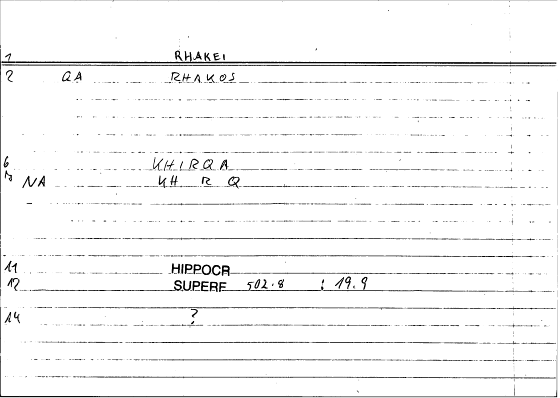 1 RHAKEI
2 QA RHAKOS
6 KHIRQA
10 NA KH R Q
11 HIPPOCR
12 SUPERF 502.8 : 19.9
14 ?